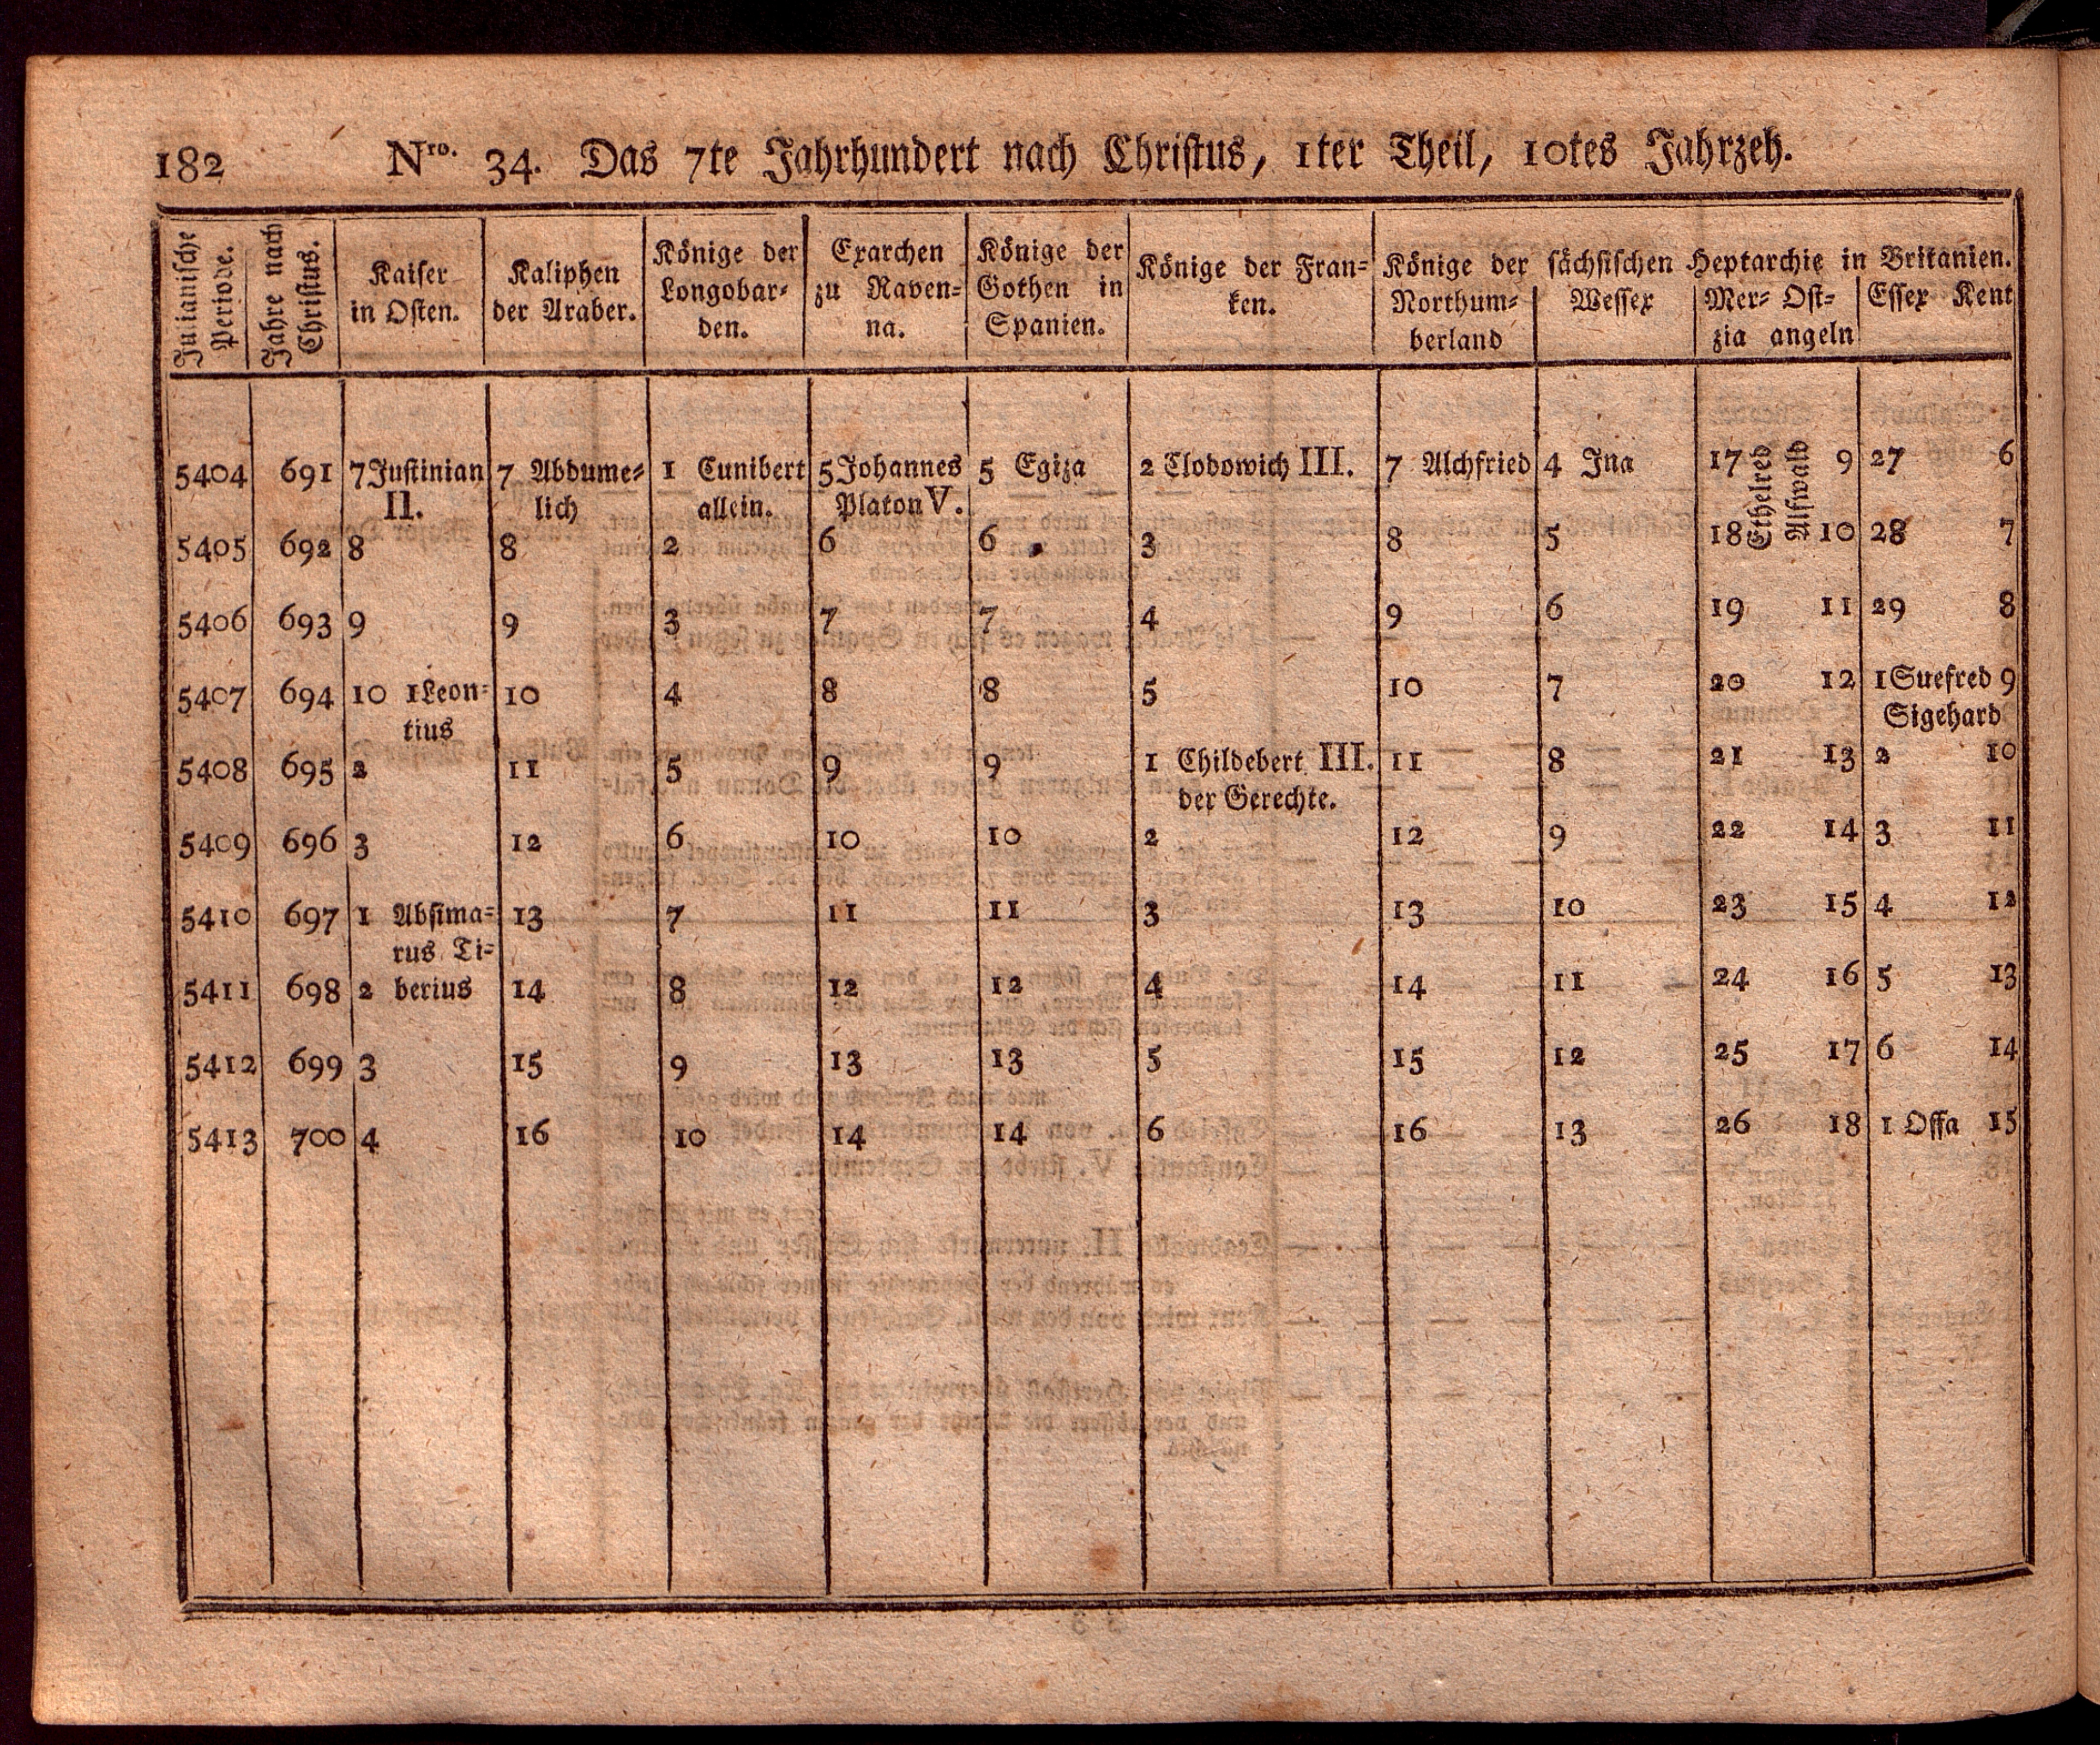 182 Nro. 34. Das 7te Jahrhundert nach Christus, 1ter Theil, 10tes Jahrzeh.
Julianische Periode.
Jahre nach Christus.
Kaiser
in Osten.
Kaliphen
der Araber.
Könige der
Longobar-
den.
Exarchen
zu Raven-
na.
Könige der
Gothen in
Spanien.
Könige der Fran-
ken.
Könige der sächsischen Heptarchie in Britanien.
Northum-
berland
Wessex
Mer- Ost-
zia angeln
Essex Kent
5404 691 7 Justinian 7 Abdume- 1 Cunibert 5 Johannes 5 Egiza 2 Clodowich III. 7 Alchfried 4 Ina 17 Ethelred Alfwald 9 27 6
II. lich allein. Platon V.
5405 692 8 8 2 6 6 3 8 5 18 10 28 7
5406 693 9 9 3 7 7 4 9 6 19 11 29 8
5407 694 10 1 Leon- 10 4 8 8 5 10 7 20 12 1 Suefred 9
tius Sigehard
5408 695 2 11 5 9 9 1 Childebert III. 11 8 21 13 2 10
der Gerechte.
5409 696 3 12 6 10 10 2 12 9 22 14 3 11
5410 697 1 Absima- 13 7 11 11 3 13 10 23 15 4 12
rus Ti-
5411 698 2 berius 14 8 12 12 4 14 11 24 16 5 13
5412 699 3 15 9 13 13 5 15 12 25 17 6 14
5413 700 4 16 10 14 14 6 16 13 26 18 1 Offa 15